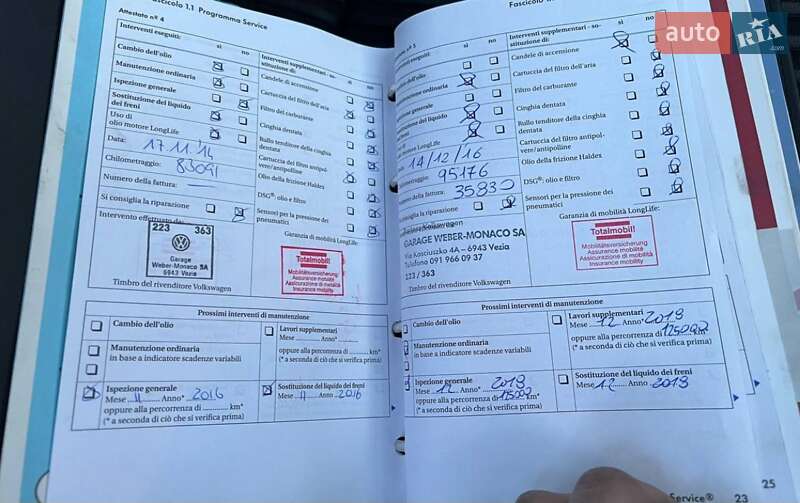 Fascicolo 1.1 Programma Service
Attestato n° 4
Interventi eseguiti:
sì
no
Cambio dell'olio
Manutenzione ordinaria
Ispezione generale
Sostituzione del liquido
dei freni
Uso di
olio motore LongLife
Data:
17.11.14
Chilometraggio:
83091
Numero della fattura:
Si consiglia la riparazione
Intervento effettuato da:
223 363
Garage
Weber-Monaco SA
6943 Vezia
Timbro del rivenditore Volkswagen
Interventi supplementari - so-
stituzione di:
sì
no
Candele di accensione
Cartuccia del filtro dell'aria
Filtro del carburante
Cinghia dentata
Rullo tenditore della cinghia
dentata
Cartuccia del filtro antipol-
vere/antipolline
Olio della frizione Haldex
DSG®: olio e filtro
Sensori per la pressione dei
pneumatici
Garanzia di mobilità LongLife:
Totalmobil!
Mobilitätsversicherung
Assurance mobilité
Assicurazione di mobilità
Insurance mobility
Prossimi interventi di manutenzione
Cambio dell'olio
Manutenzione ordinaria
in base a indicatore scadenze variabili
Lavori supplementari
Mese Anno*
oppure alla percorrenza di km*
(* a seconda di ciò che si verifica prima)
Ispezione generale
Mese 11 Anno* 2016
oppure alla percorrenza di km*
(* a seconda di ciò che si verifica prima)
Sostituzione del liquido dei freni
Mese 11 Anno 2016
Fascicolo 1.1
n° 5
eseguiti:
sì
no
dell'olio
ordinaria
generale
del liquido
motore LongLife
14/12/16
95176
della fattura: 35830
consiglia la riparazione
Volkswagen
GARAGE WEBER-MONACO SA
Via Kosciuszko 4A – 6943 Vezia
Telefono 091 966 09 37
223 / 363
Timbro del rivenditore Volkswagen
Interventi supplementari - so-
stituzione di:
sì
no
Candele di accensione
Cartuccia del filtro dell'aria
Filtro del carburante
Cinghia dentata
Rullo tenditore della cinghia
dentata
Cartuccia del filtro antipol-
vere/antipolline
Olio della frizione Haldex
DSG®: olio e filtro
Sensori per la pressione dei
pneumatici
Garanzia di mobilità LongLife:
Totalmobil!
Mobilitätsversicherung
Assurance mobilité
Assicurazione di mobilità
Insurance mobility
Prossimi interventi di manutenzione
Cambio dell'olio
Manutenzione ordinaria
in base a indicatore scadenze variabili
Lavori supplementari
Mese 12 Anno* 2019
oppure alla percorrenza di 125000 km*
(* a seconda di ciò che si verifica prima)
Ispezione generale
Mese 12 Anno* 2019
oppure alla percorrenza di km*
(* a seconda di ciò che si verifica prima)
Sostituzione del liquido dei freni
Mese 12 Anno 2019
25
Service® 23
auto RIA
.com